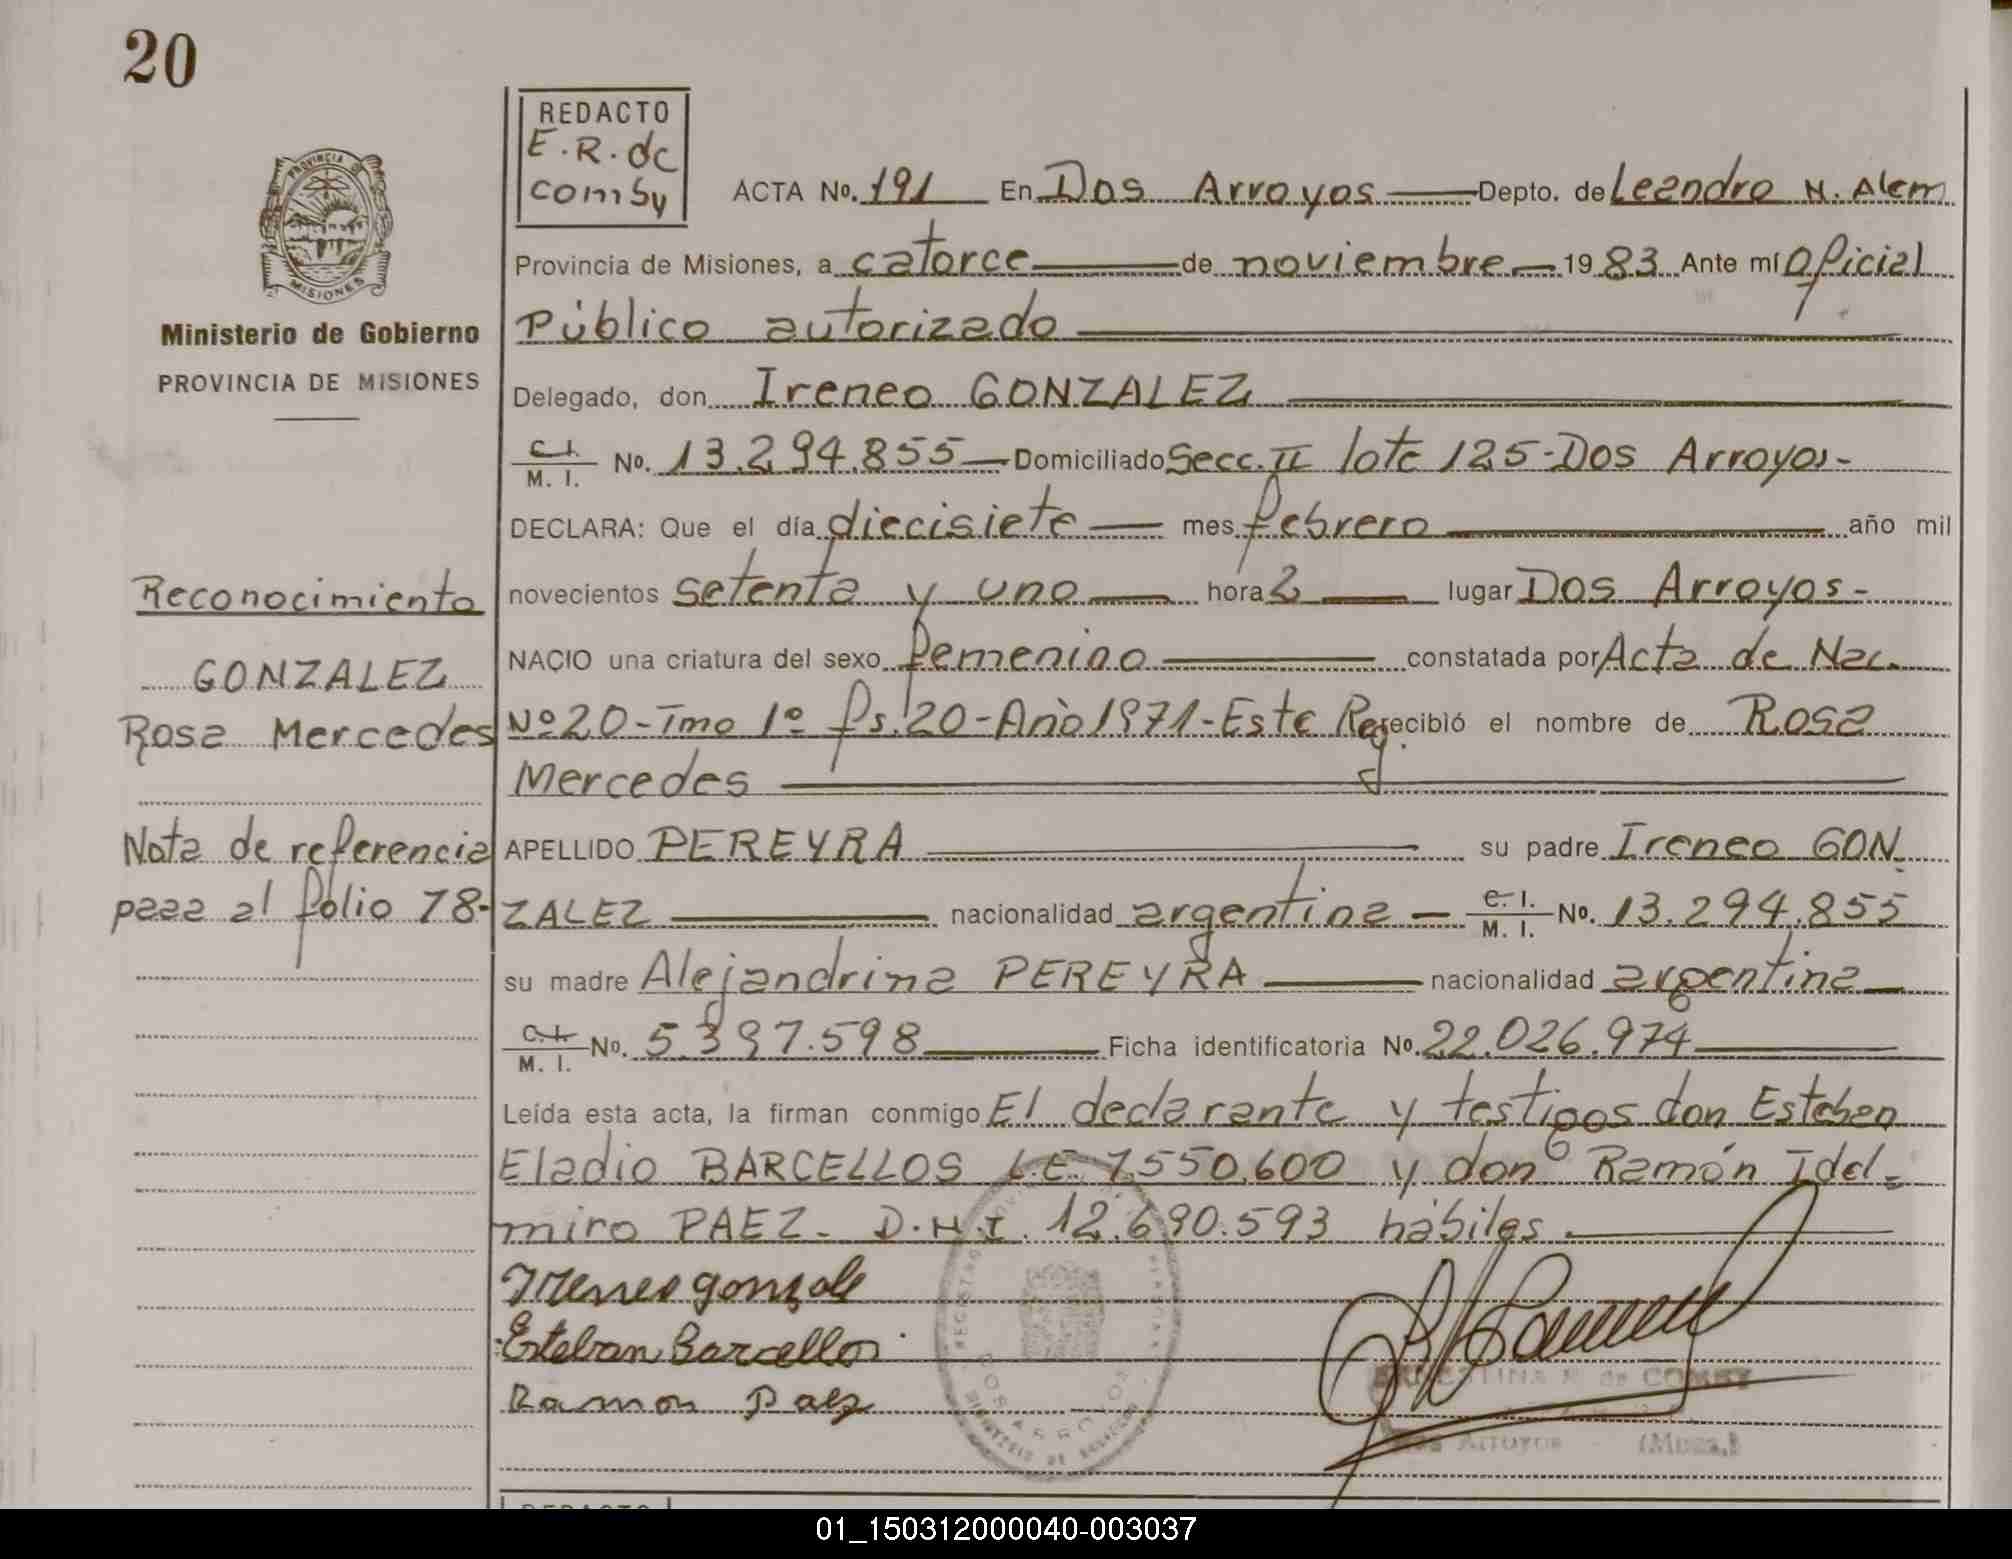 20
REDACTO
E.R. de
Comby
ACTA No. 191 En Dos Arroyos Depto. de Leandro N. Alem
PROVINCIA DE
MISIONES
Provincia de Misiones, a catorce de noviembre 1983 Ante mí Oficial
Público autorizado
Ministerio de Gobierno
PROVINCIA DE MISIONES
Delegado, don Ireneo GONZALEZ
C.I. M. I. No. 13.294.855 Domiciliado Secc. II lote 125-Dos Arroyos-
DECLARA: Que el día diecisiete mes febrero año mil
novecientos setenta y uno hora 2 lugar Dos Arroyos-
NACIO una criatura del sexo femenino constatada por Acta de Nac.
Nº 20-Tmo 1º fs. 20-Año 1971-Este Reg. recibió el nombre de Rosa
Mercedes
APELLIDO PEREYRA su padre Ireneo GON
ZALEZ nacionalidad argentina C.I. M. I. No. 13.294.855
su madre Alejandrina PEREYRA nacionalidad argentina
C.I. M. I. No. 5.397.598 Ficha identificatoria No. 22.026.974
Leída esta acta, la firman conmigo El declarante y testigos don Esteban
Eladio BARCELLOS L.E. 7.550.600 y don Ramón Idel-
miro PAEZ- D.N.I. 12.690.593 hábiles
Reconocimiento
GONZALEZ
Rosa Mercedes
Nota de referencia
pasa al folio 78-
Ireneo gonzale
Esteban Barcellos
Ramon Paez
DOS ARROYOS
ERNESTINA R. de COMBY
Dos Arroyos (Mnes.)
REDACTO
01_150312000040-003037